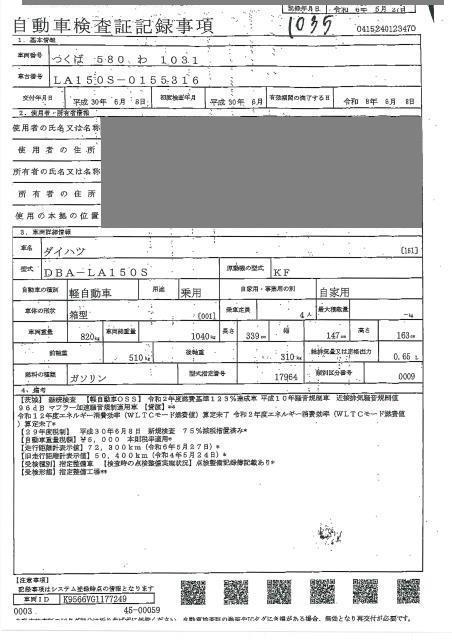 記録年月日 令和 6年 5月 27日
自動車検査証記録事項
1035
0415240123470
1. 基本情報
車両番号 つくば 580 わ 1031
車台番号 LA150S-0155316
交付年月日 平成 30年 6月 8日 初度検査年月 平成 30年 6月 有効期間の満了する日 令和 8年 6月 8日
2. 使用者・所有者情報
使用者の氏名又は名称
使用者の住所
所有者の氏名又は名称
所有者の住所
使用の本拠の位置
3. 車両詳細情報
車名 ダイハツ [151]
型式 DBA-LA150S 原動機の型式 KF
自動車の種別 軽自動車 用途 乗用 自家用・事業用の別 自家用
車体の形状 箱型 [001] 乗車定員 4人 最大積載量 -kg
車両重量 820kg 車両総重量 1040kg 長さ 339cm 幅 147cm 高さ 163cm
前軸重 510kg 後軸重 310kg 総排気量又は定格出力 0.65 L
燃料の種類 ガソリン 型式指定番号 17964 類別区分番号 0009
4. 備考
[茨城] 継続検査 【軽自動車OSS】 令和2年度燃費基準129%達成車 平成10年騒音規制車 近接排気騒音規制値
96dB マフラー加速騒音規制適用車 【貸渡】**
令和12年度エネルギー消費効率(WLTCモード燃費値)算定未了 令和2年度エネルギー消費効率(WLTCモード燃費値
)算定未了*
【29年度税制】 平成30年6月8日 新規検査 75%減税措置済み*
[自動車重量税額] ¥5,000 本則税率適用*
[走行距離計表示値] 72,300km (令和6年5月27日)*
[旧走行距離計表示値] 50,400km (令和4年5月24日)*
[受検種別] 指定整備車 【検査時の点検整備実施状況】点検整備記録簿記載あり*
[受検形態] 指定整備工場**
【注意事項】
記録事項はシステム登録時点の情報となります
車両ID K9566VG1177249
0003 45-00059